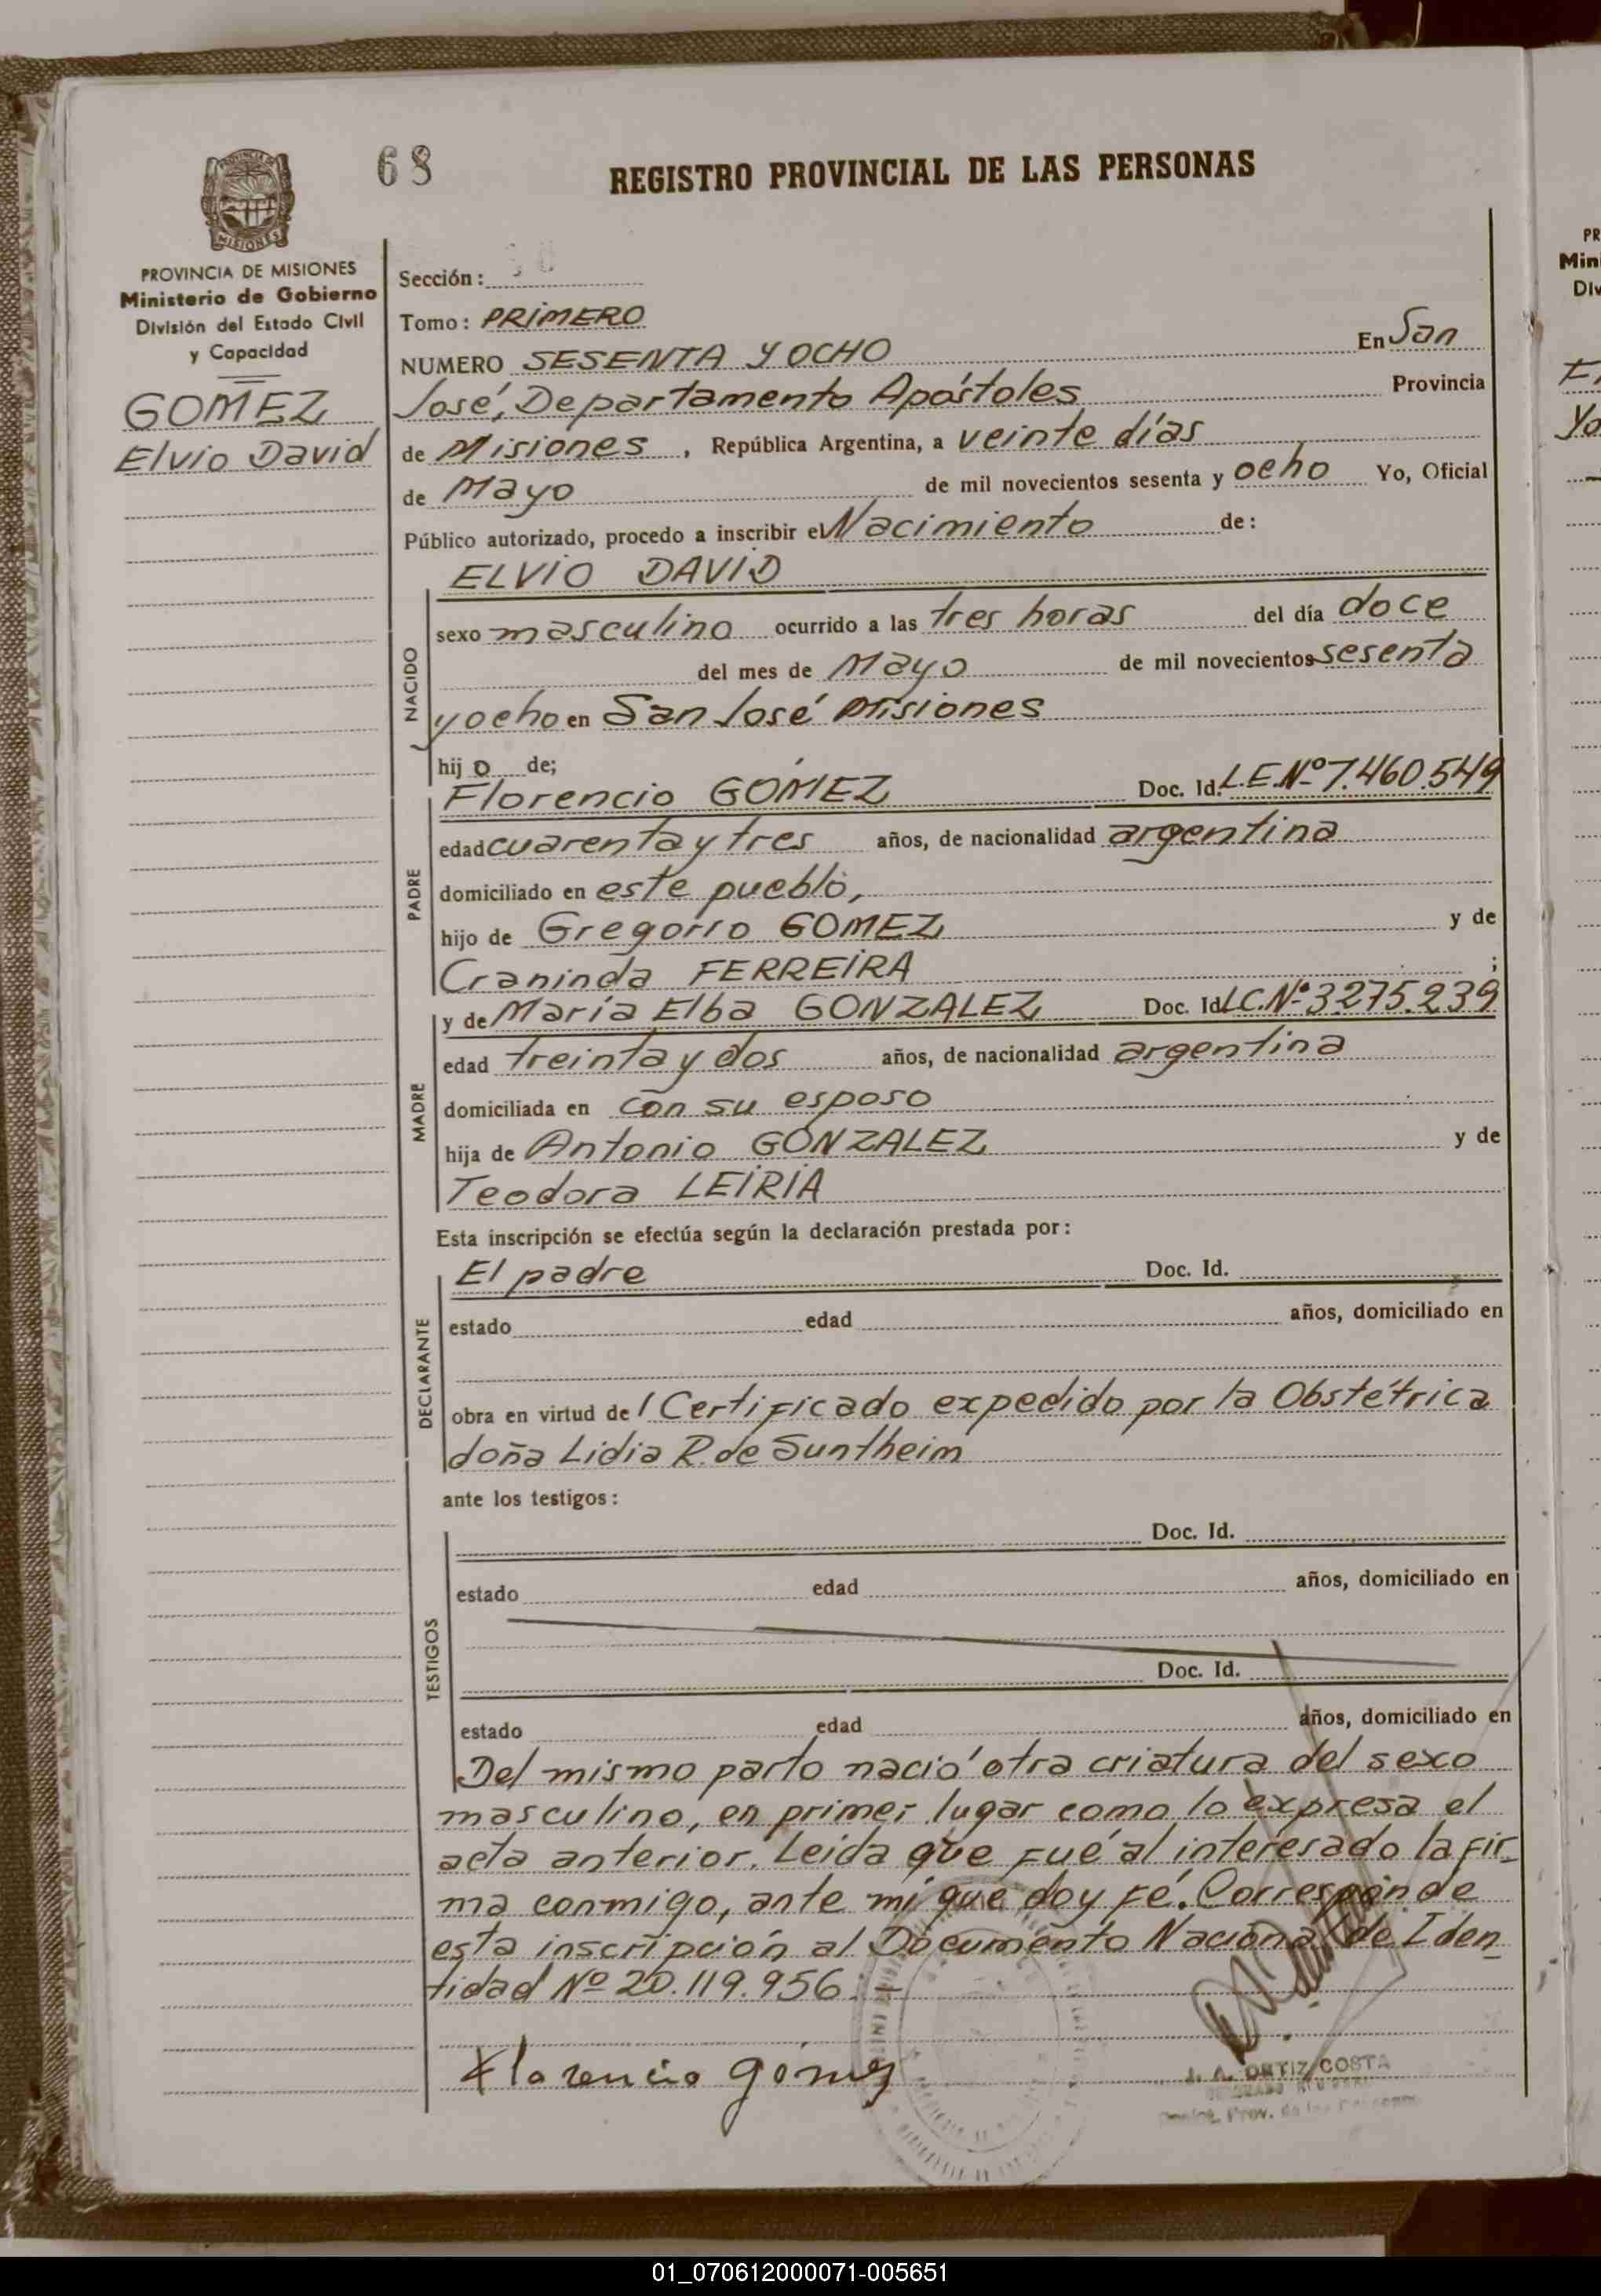 68
REGISTRO PROVINCIAL DE LAS PERSONAS
PROVINCIA DE MISIONES
Ministerio de Gobierno
División del Estado Civil
y Capacidad
GOMEZ
Elvio David
Sección:
Tomo: PRIMERO
NUMERO SESENTA Y OCHO En San
José, Departamento Apóstoles Provincia
de Misiones, República Argentina, a veinte días
de Mayo de mil novecientos sesenta y ocho Yo, Oficial
Público autorizado, procedo a inscribir el Nacimiento de:
ELVIO DAVID
NACIDO
sexo masculino ocurrido a las tres horas del día doce
del mes de Mayo de mil novecientos sesenta
y ocho en San José Misiones
hijo de;
PADRE
Florencio GOMEZ Doc. Id. L.E.Nº 7.460.549
edad cuarenta y tres años, de nacionalidad argentina
domiciliado en este pueblo,
hijo de Gregorio GOMEZ y de
Craninda FERREIRA ;
MADRE
y de María Elba GONZALEZ Doc. Id. L.C.Nº 3.275.239
edad treinta y dos años, de nacionalidad argentina
domiciliada en con su esposo
hija de Antonio GONZALEZ y de
Teodora LEIRIA
Esta inscripción se efectúa según la declaración prestada por:
DECLARANTE
El padre Doc. Id.
estado edad años, domiciliado en
obra en virtud del Certificado expedido por la Obstétrica
doña Lidia R. de Suntheim
ante los testigos:
TESTIGOS
Doc. Id.
estado edad años, domiciliado en
Doc. Id.
estado edad años, domiciliado en
Del mismo parto nació otra criatura del sexo
masculino, en primer lugar como lo expresa el
acta anterior. Leida que fué al interesado la fir-
ma conmigo, ante mí que doy fé. Corresponde
esta inscripción al Documento Nacional de Iden-
tidad Nº 20.119.956.-
Florencio gómez
J. A. ORTIZ COSTA
PR
Min
Div
01_070612000071-005651